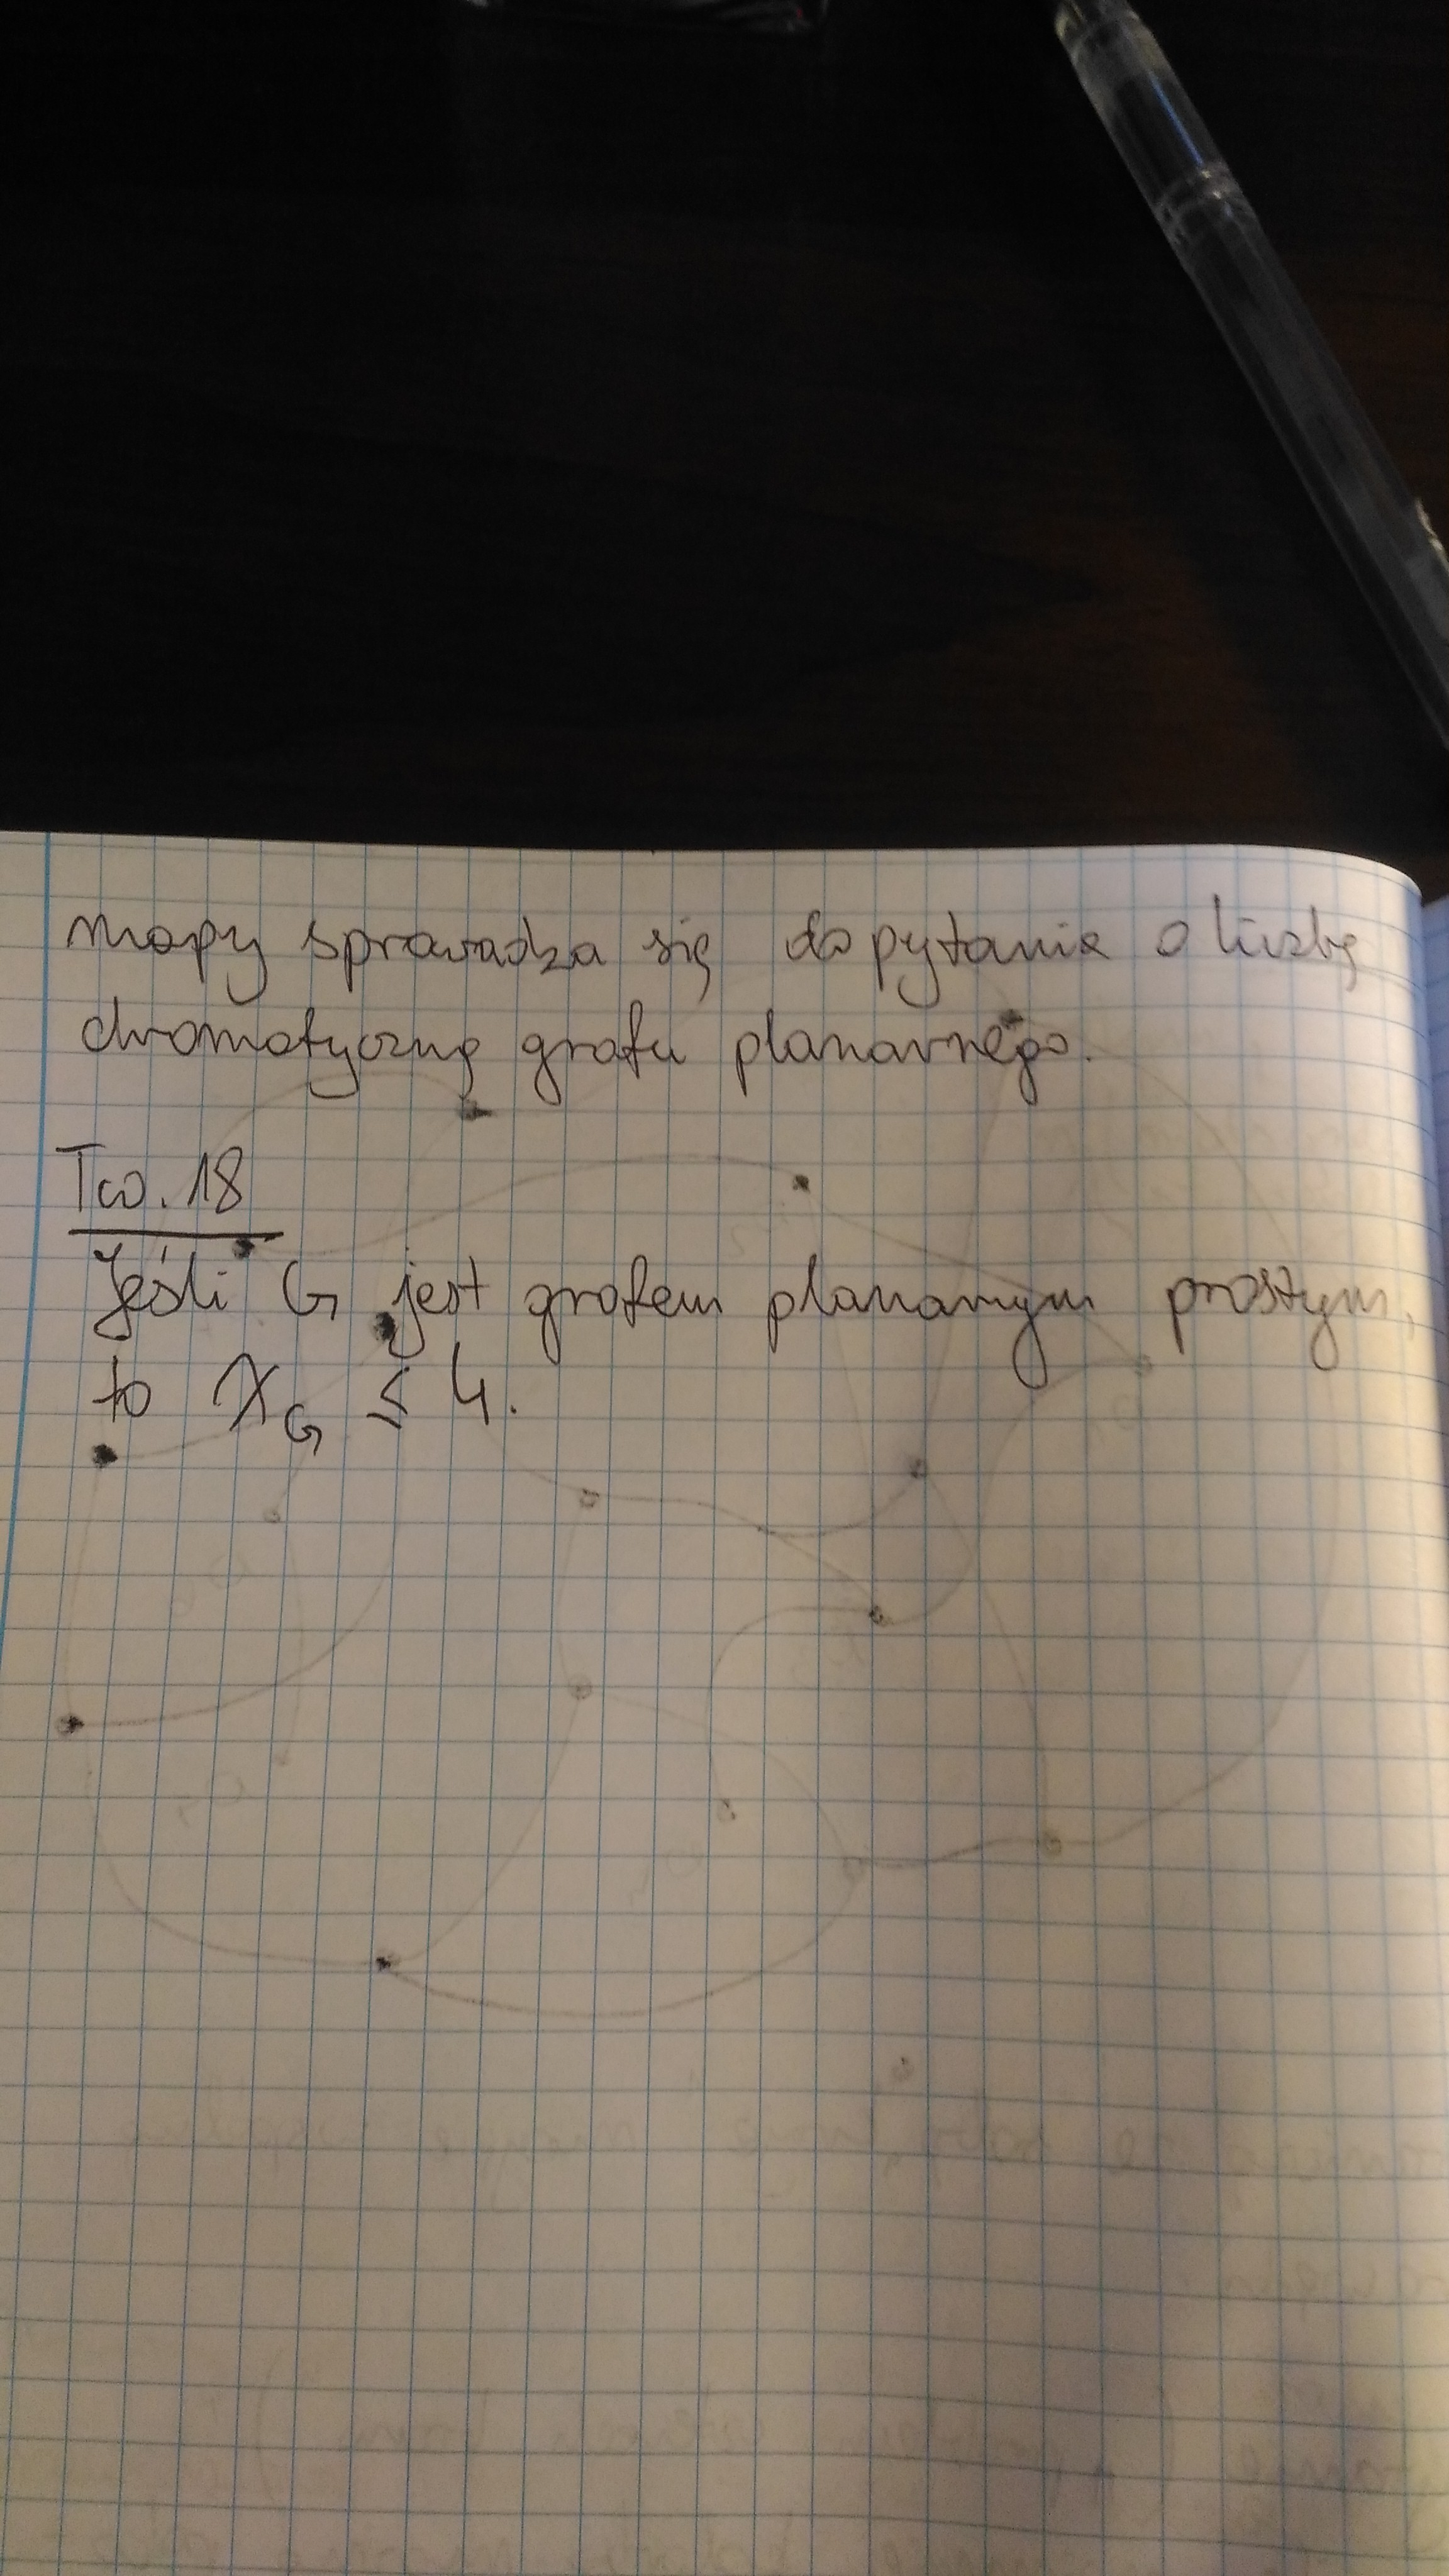 mapy sprowadza się do pytania o liczbę
chromatyczną grafu planarnego.
Tw. 18
Jeśli G jest grafem planarnym prostym,
to χ_G ≤ 4.